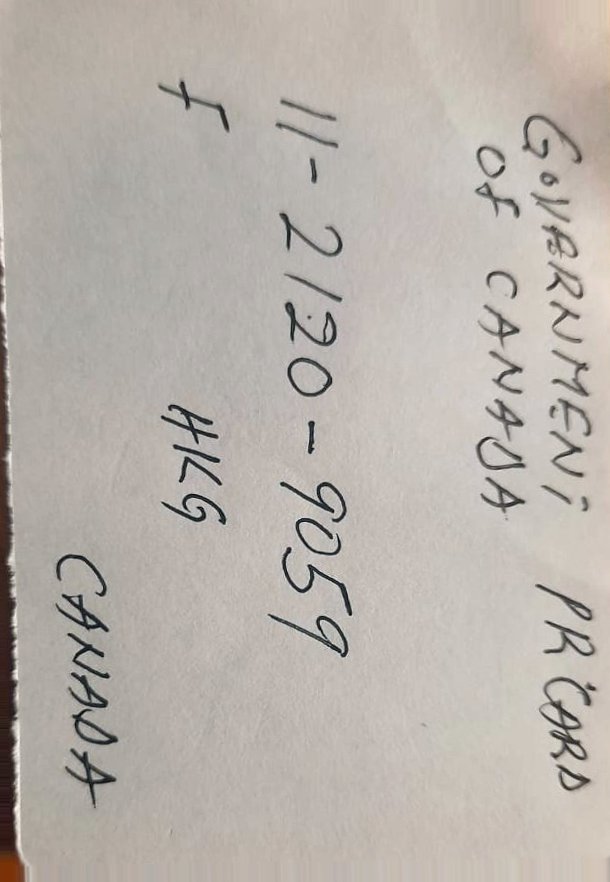 GOVARNMENT PR CARD
OF CANADA
11-2120-9059
F HKG
CANADA